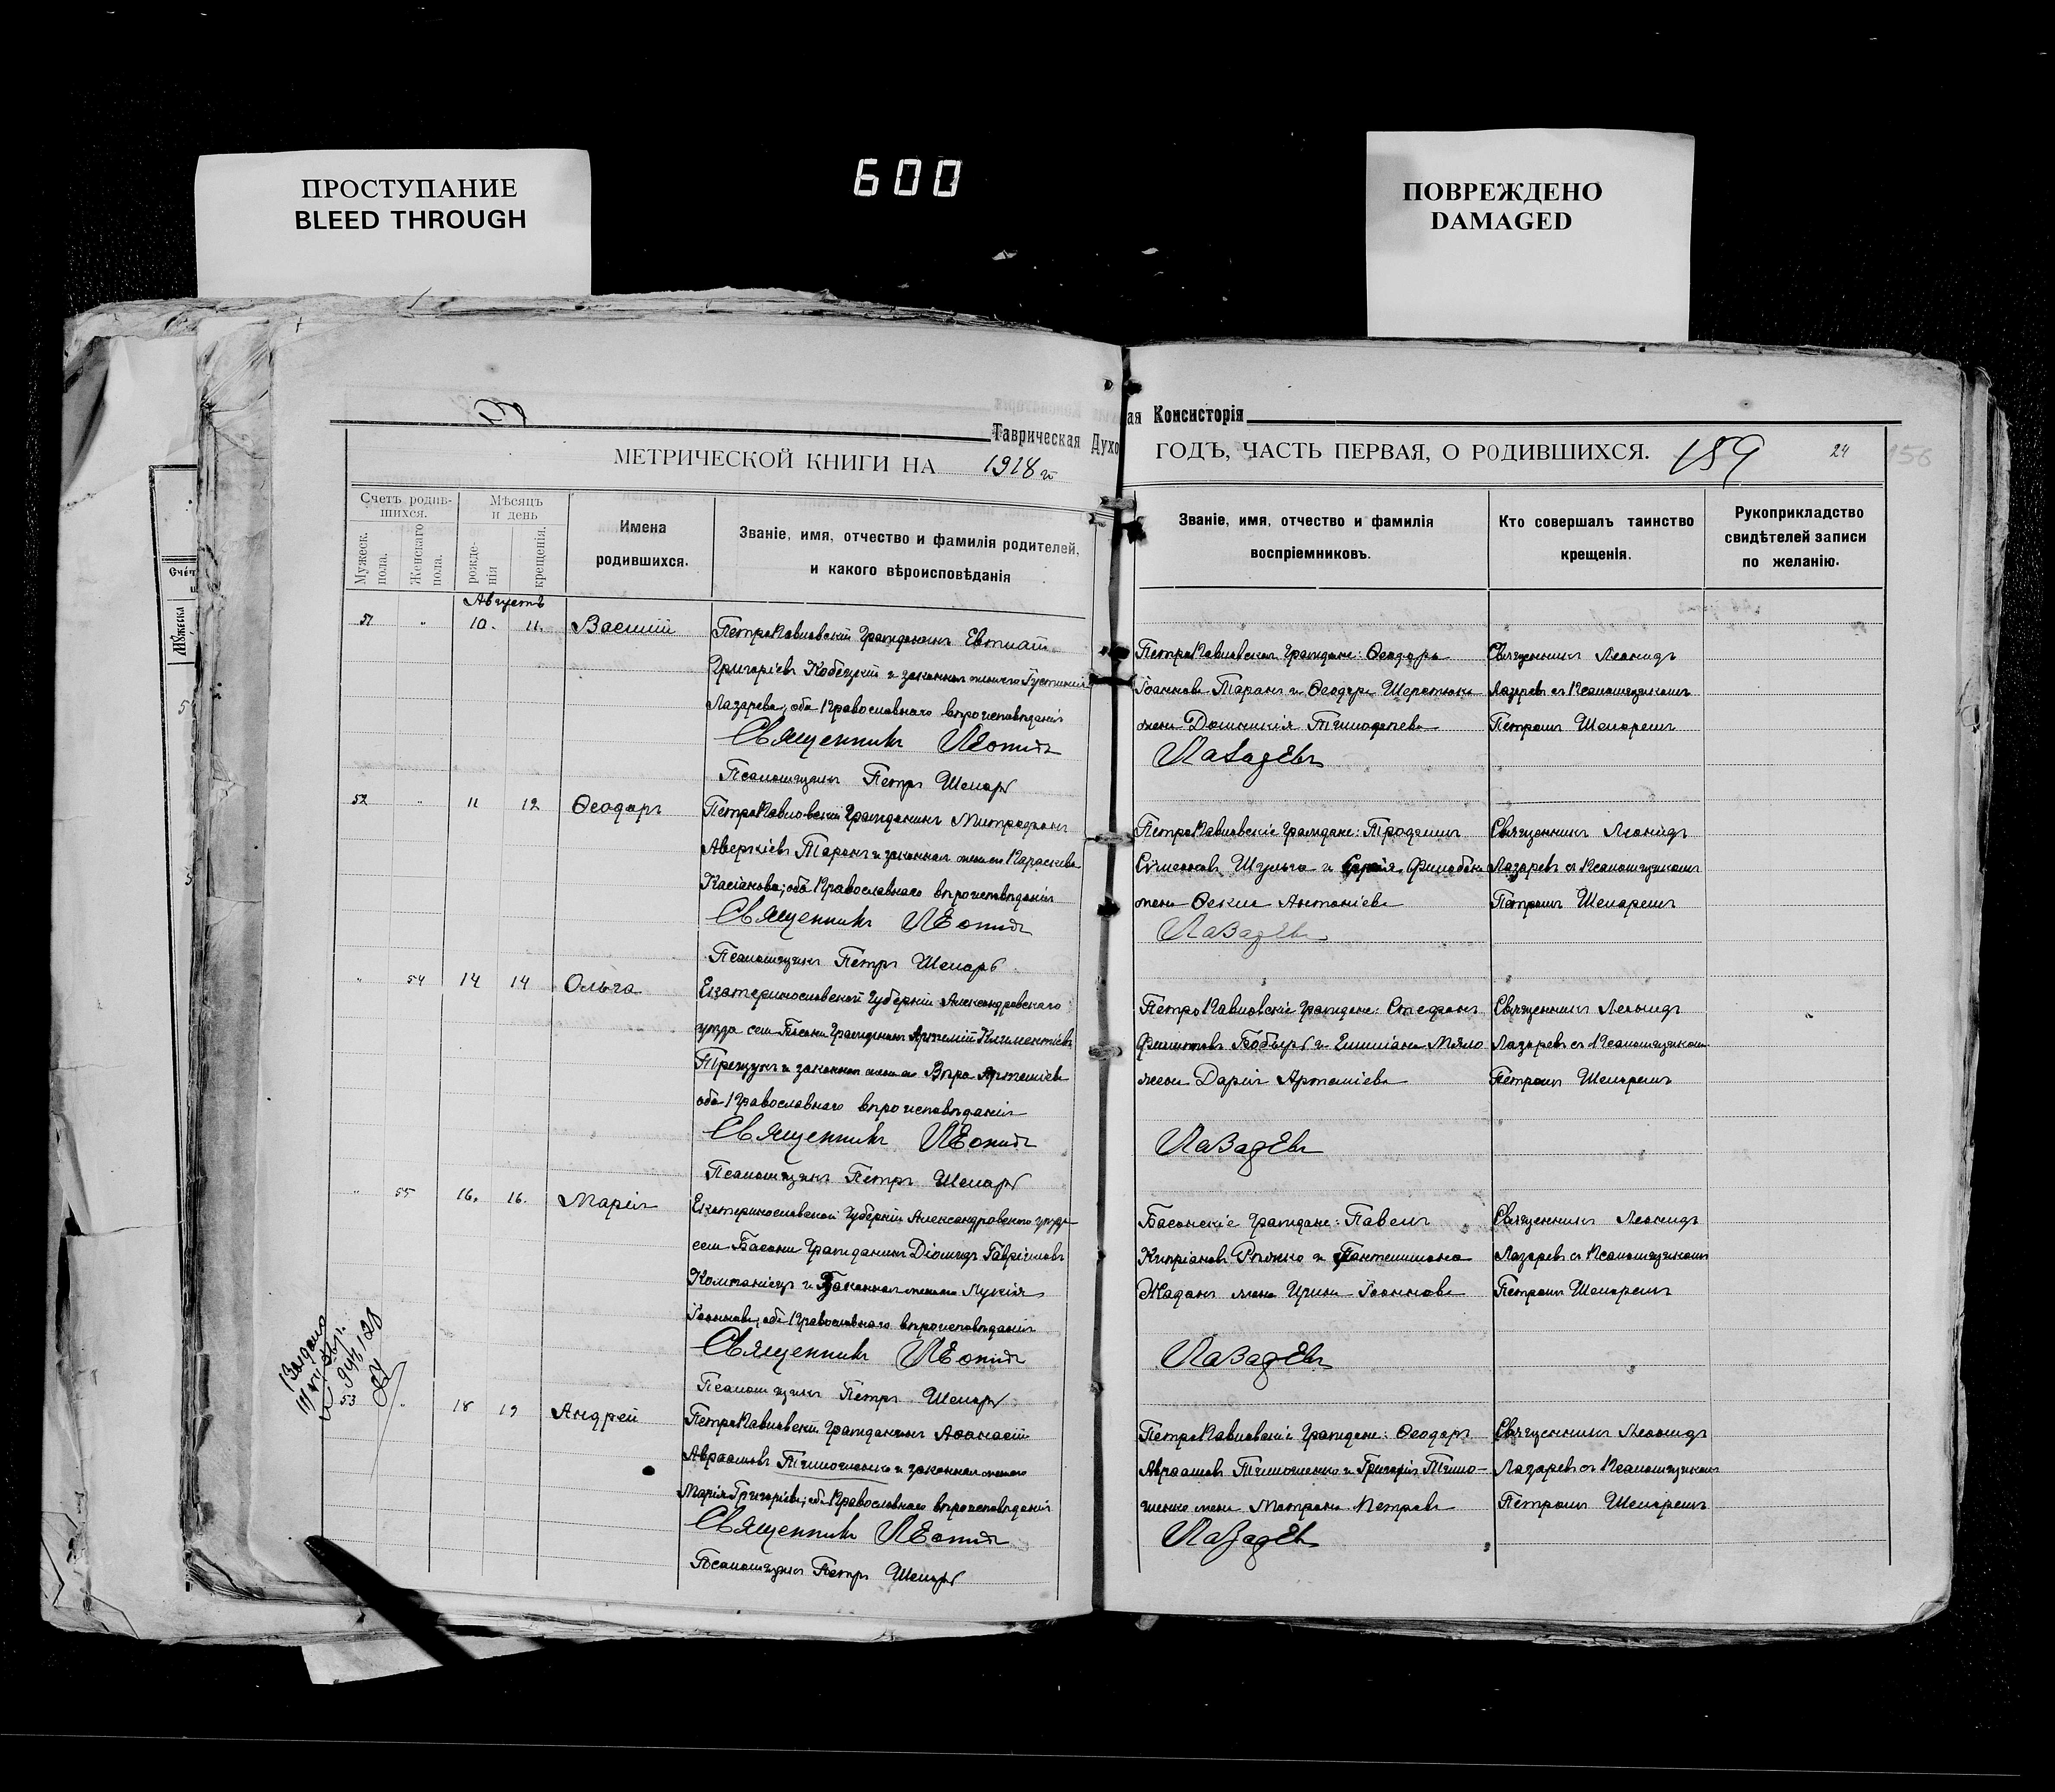 ПРОСТУПАНИЕ
BLEED THROUGH
600
ПОВРЕЖДЕНО
DAMAGED
Таврическая Духо
ая Консисторія
МЕТРИЧЕСКОЙ КНИГИ НА 1918 г.
ГОДЪ, ЧАСТЬ ПЕРВАЯ, О РОДИВШИХСЯ. 159 24 156
Счетъ родив-
шихся.
Мужеск. пола.
Женскаго пола.
Мѣсяцъ
и день
рожде-
нія
крещенія.
Имена
родившихся.
Званіе, имя, отчество и фамилія родителей,
и какого вѣроисповѣданія
Званіе, имя, отчество и фамилія
воспріемниковъ.
Кто совершалъ таинство
крещенія.
Рукоприкладство
свидѣтелей записи
по желанію.
Августъ
51 " 10. 11. Василій
ПетроПавловскій Гражданинъ
Григоріевъ и законная жена его Іустинія
Лазарева, оба Православнаго вѣроисповѣданія
Священникъ Леонидъ
Псаломщикъ Петръ Шепарь
ПетроПавловскіе Граждане: Ѳеодоръ
Іоанновъ Таранъ и Ѳеодора
жена Тимоѳеева
Лазаревъ
Священникъ Леонидъ
Лазаревъ съ Псаломщикомъ
Петромъ Шепаремъ
52 " 11 12 Ѳеодоръ
ПетроПавловскій Гражданинъ Митрофанъ
Аверкіевъ Таранъ и законная жена его Параскева
Касіанова, оба Православнаго вѣроисповѣданія
Священникъ Леонидъ
Псаломщикъ Петръ Шепарь
ПетроПавловскіе Граждане: Трофимъ
Симеоновъ Шульга и
жена Ѳекла Антоніева
Лазаревъ
Священникъ Леонидъ
Лазаревъ съ Псаломщикомъ
Петромъ Шепаремъ
" 54 14 14 Ольга
Екатеринославской Губерніи Александровскаго
уѣзда села Басани Гражданинъ Артемій Климентіевъ
и законная жена его Вѣра Артеміева
оба Православнаго вѣроисповѣданія
Священникъ Леонидъ
Псаломщикъ Петръ Шепарь
ПетроПавловскіе Граждане: Стефанъ
Филиповъ Бобырь и Емиліана Мяло
жена Дарія Артеміева
Лазаревъ
Священникъ Леонидъ
Лазаревъ съ Псаломщикомъ
Петромъ Шепаремъ
" 55 16. 16. Марія
Екатеринославской Губерніи Александровскаго уѣзда
села Басани Гражданинъ Діомидъ Гавріиловъ
Компаніецъ и законная жена его Лукія
Іоаннова, оба Православнаго вѣроисповѣданія
Священникъ Леонидъ
Псаломщикъ Петръ Шепарь
Басанскіе Граждане: Павелъ
Кипріановъ и Пантелимона
Жадана жена Ирина Іоаннова
Лазаревъ
Священникъ Леонидъ
Лазаревъ съ Псаломщикомъ
Петромъ Шепаремъ
53 " 18 19 Андрей
ПетроПавловскій Гражданинъ Аѳанасій
Авраамовъ Тимошенко и законная жена его
Марія Григоріева, оба Православнаго вѣроисповѣданія
Священникъ Леонидъ
Псаломщикъ Петръ Шепарь
ПетроПавловскіе Граждане: Ѳеодоръ
Авраамовъ Тимошенко и Григорія Тимо-
шенко жена Матрона Петрова
Лазаревъ
Священникъ Леонидъ
Лазаревъ съ Псаломщикомъ
Петромъ Шепаремъ